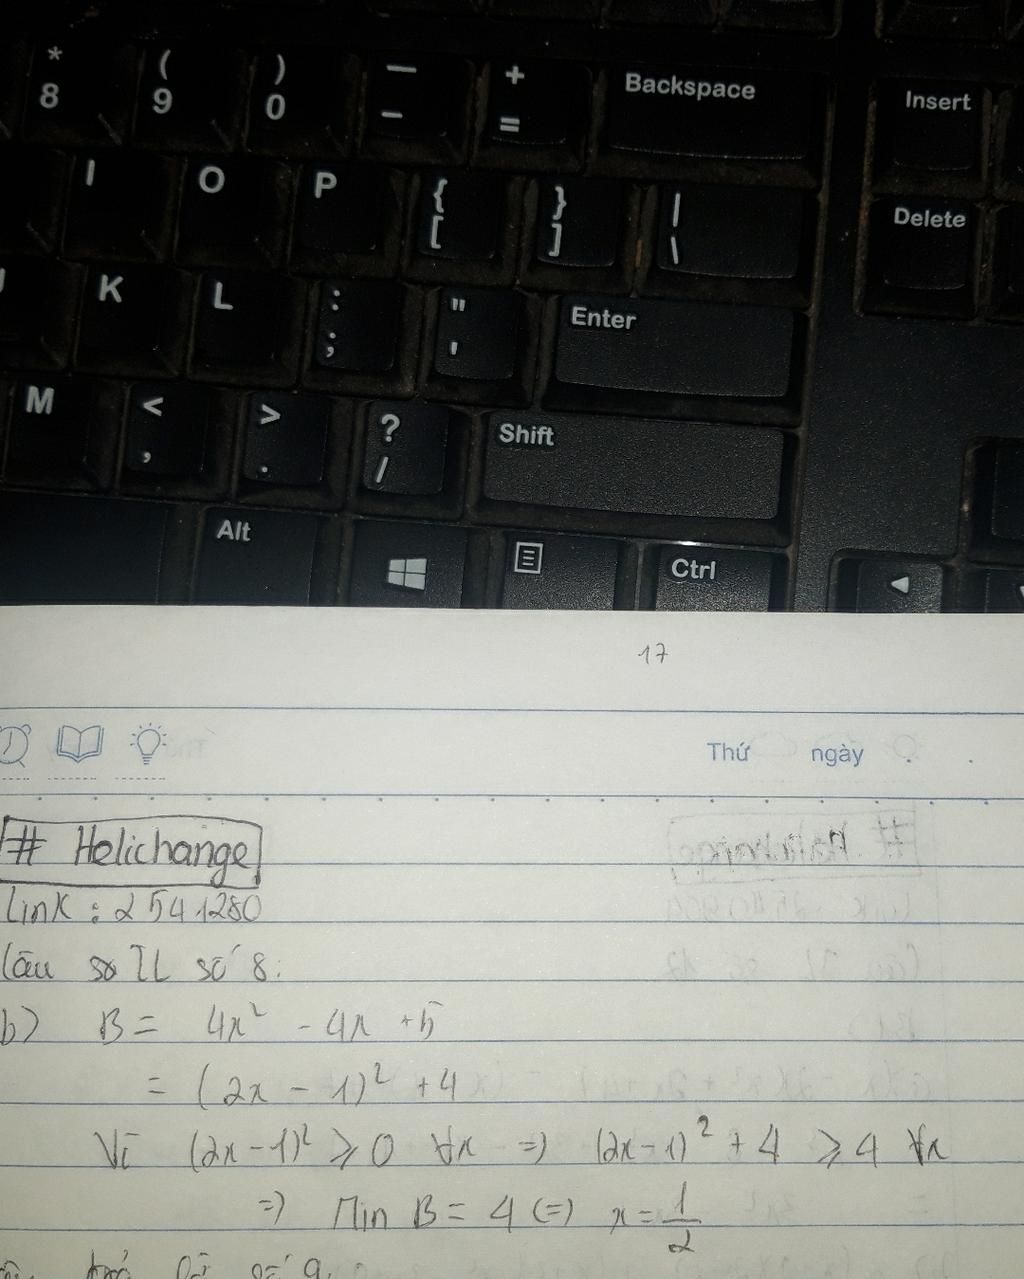 * ( ) — + Backspace Insert
8 9 0 – =
I O P { } | Delete
[ ] \
K L : " Enter
; '
M < > ? Shift
, . /
Alt Ctrl
17
Thứ ngày
# Helichange
link : 2541280
số 8:
b) B = 4x² - 4x + 5
= (2x - 1)² + 4
Vì (2x-1)² ⩾ 0 ∀x => (2x-1)² + 4 ⩾ 4 ∀x
=> Min B = 4 (=) x = 1/2
số 9: